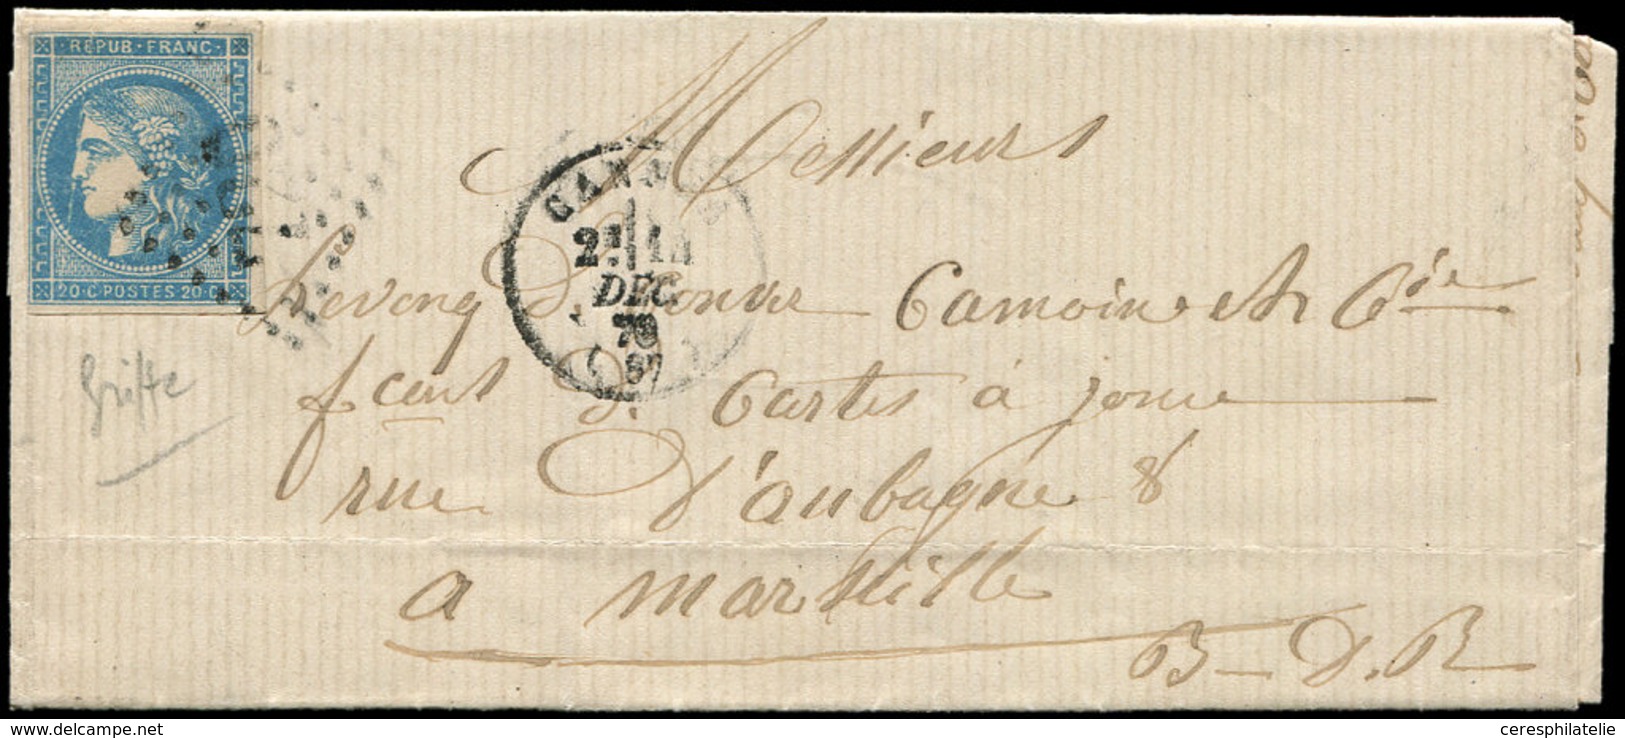 REPUB · FRANC
20 · C POSTES 20 · C
CANNES
2E 14
DEC.
70
( 87 )
Griffe
Messieurs
Camoin et Cie
fcant de Cartes à joue
rue D'aubagne 8
a Marseille
B-D.R
ceresphilatelie